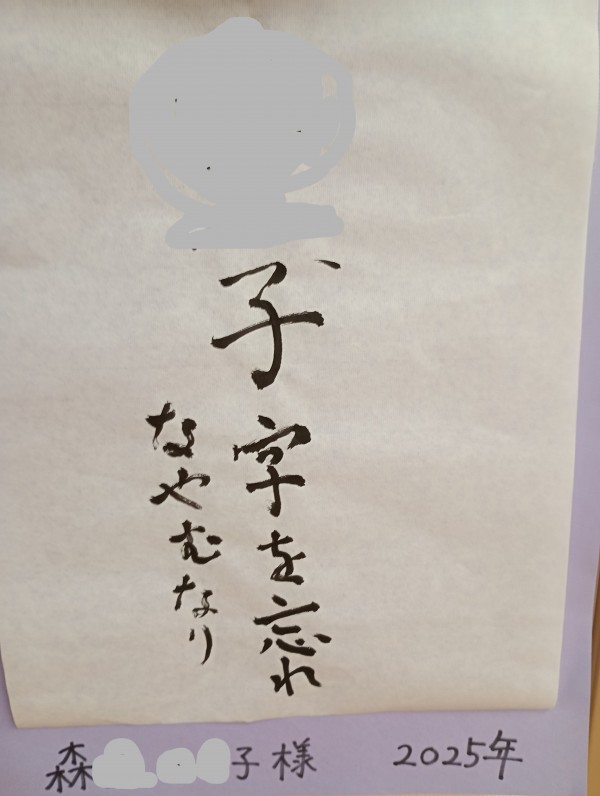 子
字を忘れ
なやむなり
森 子様 2025年